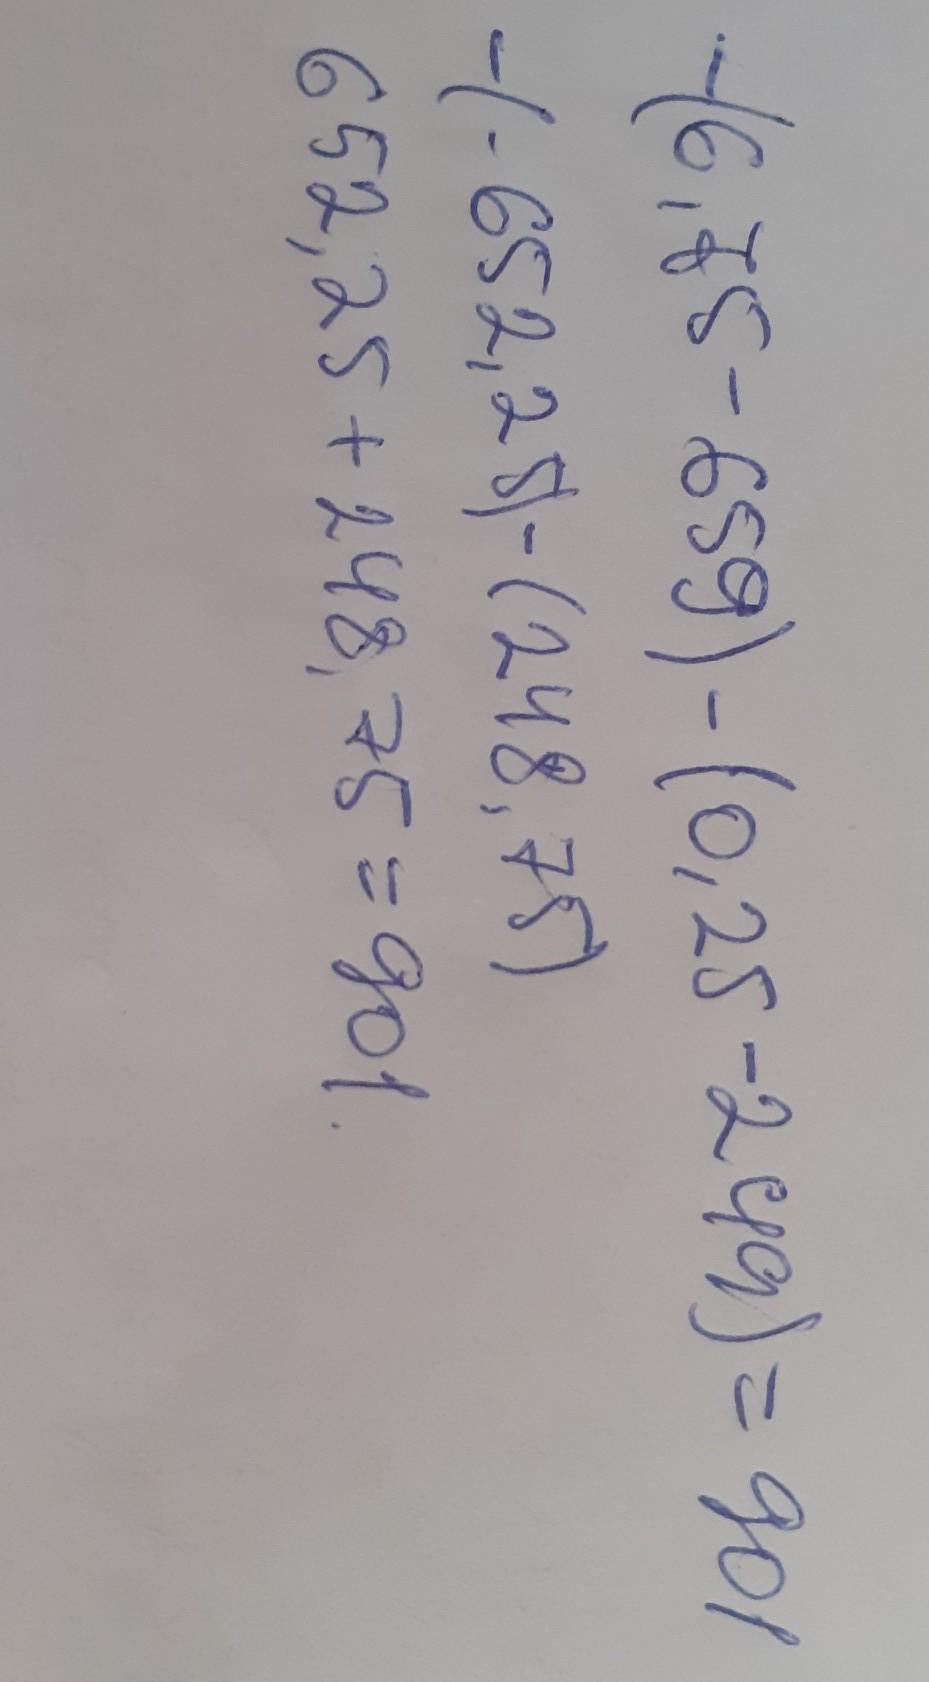 -(6,75-659)-(0,25-249)=901
-(-652,25)-(248,75)
652,25+248,75=901.